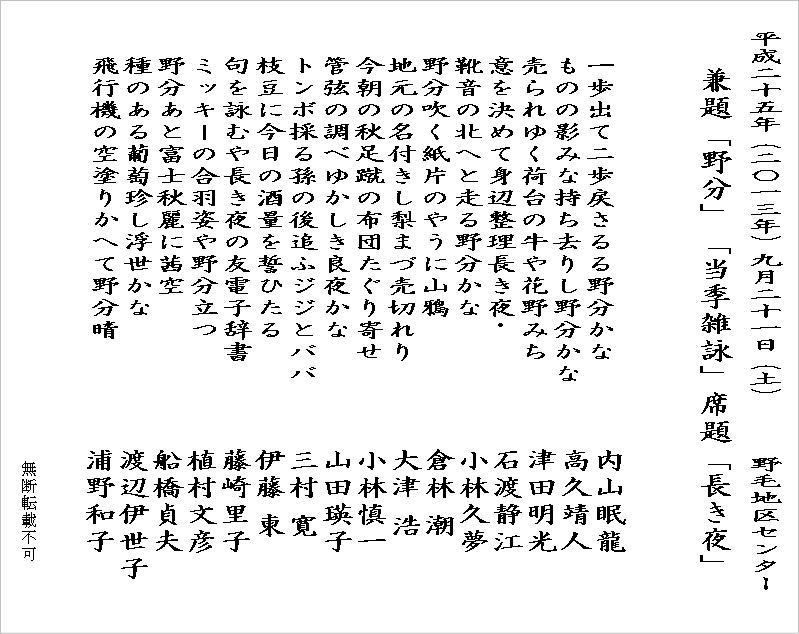 平成二十五年(二〇一三年)九月二十一日(土) 野毛地区センター
兼題「野分」 「当季雑詠」席題「長き夜」
一歩出て二歩戻さるる野分かな 内山眠龍
ものの影みな持ち去りし野分かな 高久靖人
売られゆく荷台の牛や花野みち 津田明光
意を決めて身辺整理長き夜・ 石渡静江
靴音の北へと走る野分かな 小林久夢
野分吹く紙片のやうに山鴉 倉林潮
地元の名付きし梨まづ売切れり 大津浩
今朝の秋足蹴の布団たぐり寄せ 小林慎一
管弦の調べゆかしき良夜かな 山田瑛子
トンボ採る孫の後追ふジジとババ 三村寛
枝豆に今日の酒量を誓ひたる 伊藤東
句を詠むや長き夜の友電子辞書 藤崎里子
ミッキーの合羽姿や野分立つ 植村文彦
野分あと富士秋麗に茜空 船橋貞夫
種のある葡萄珍し浮世かな 渡辺伊世子
飛行機の空塗りかへて野分晴 浦野和子
無断転載不可